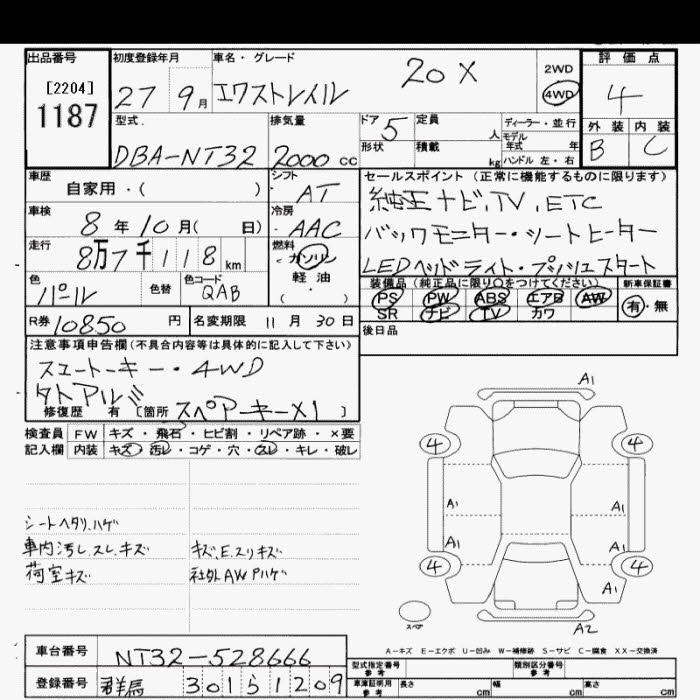 出品番号 初度登録年月 車名・グレード 評価点
[2204]
1187
27 9月 エクストレイル 20X 2WD 4WD 4
型式. 排気量 ドア 5 定員 人 ディーラー・並行 外装 内装
DBA-NT32 2000cc 形状 積載 kg モデル年式 年 B C
ハンドル 左・右
車歴 自家用・( ) シフト AT セールスポイント(正常に機能するものに限ります)
車検 8年10月( 日) 冷房 AAC 純正ナビ、TV、ETC
走行 8万7千118km 燃料 ガソリン 軽油 ・( ) バックモニター・シートヒーター
LEDヘッドライト・プッシュスタート
色 パール 色替 色コード QAB 装備品(純正品に限り○をつけてください) 新車保証書
PS PW ABS エアB AW 有・無
SR ナビ TV カワ
R券 10850円 名変期限 11月30日 後日品
注意事項申告欄(不具合内容等は具体的に記入して下さい)
スマートキー・4WD
タトアルミ
修復歴 有 [箇所 スペアキー×1 ]
検査員 FW キズ・飛石・ヒビ割・リペア跡・×要
記入欄 内装 キズ・汚レ・コゲ・穴・スレ・キレ・破レ
シートヘタリ、ハゲ
車内汚レ スレ キズ キズ、E、スリキズ
荷室キズ 社外AWアハゲ
A1
4 4
A1 A1
A1 A1
4 4
A1
スペア A2
A-キズ E-エクボ U-凹み W-補修跡 S-サビ C-腐食 XX-交換済
車台番号 NT32-528666
登録番号 群馬 301 5 1209
型式指定番号 参考 類別区分番号 参考
車庫証明用 参考 長さ cm 幅 cm 高さ cm